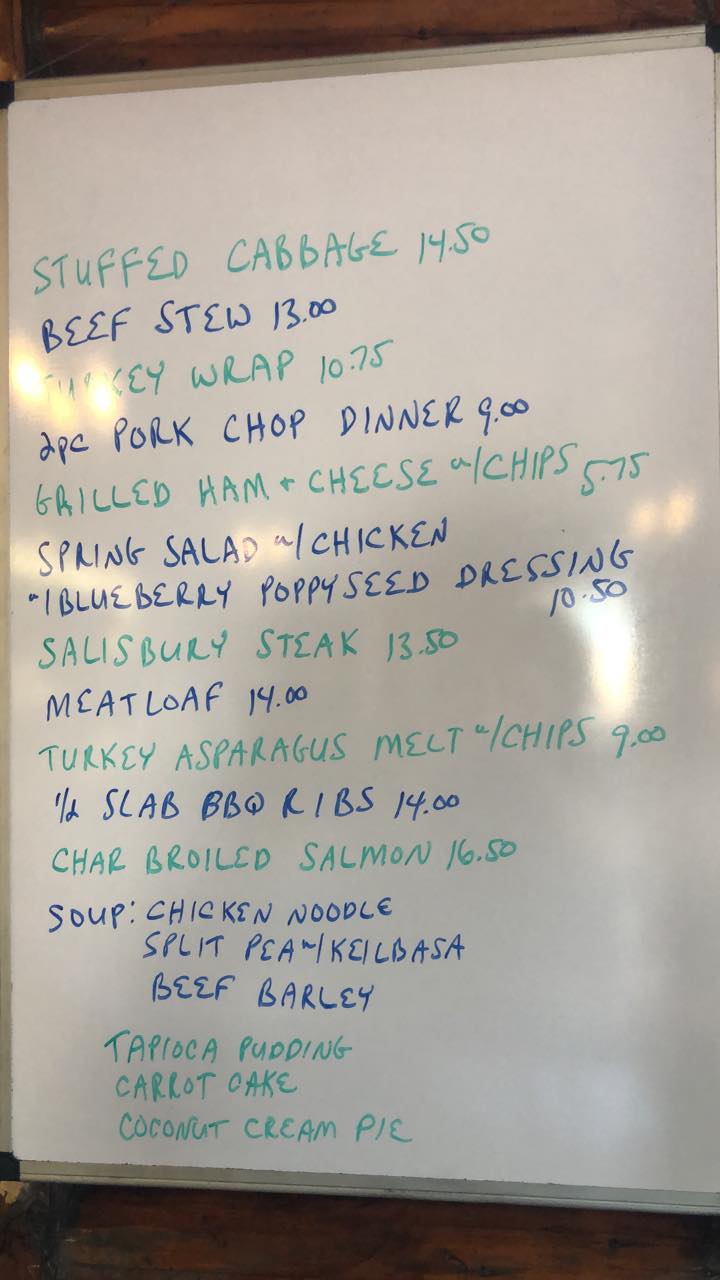 STUFFED CABBAGE 14.50
BEEF STEW 13.00
TURKEY WRAP 10.75
2pc PORK CHOP DINNER 9.00
GRILLED HAM + CHEESE w/CHIPS 5.75
SPRING SALAD w/CHICKEN
w/BLUEBERRY POPPYSEED DRESSING
10.50
SALISBURY STEAK 13.50
MEATLOAF 14.00
TURKEY ASPARAGUS MELT w/CHIPS 9.00
1/2 SLAB BBQ RIBS 14.00
CHAR BROILED SALMON 16.50
SOUP: CHICKEN NOODLE
SPLIT PEA w/KEILBASA
BEEF BARLEY
TAPIOCA PUDDING
CARROT CAKE
COCONUT CREAM PIE